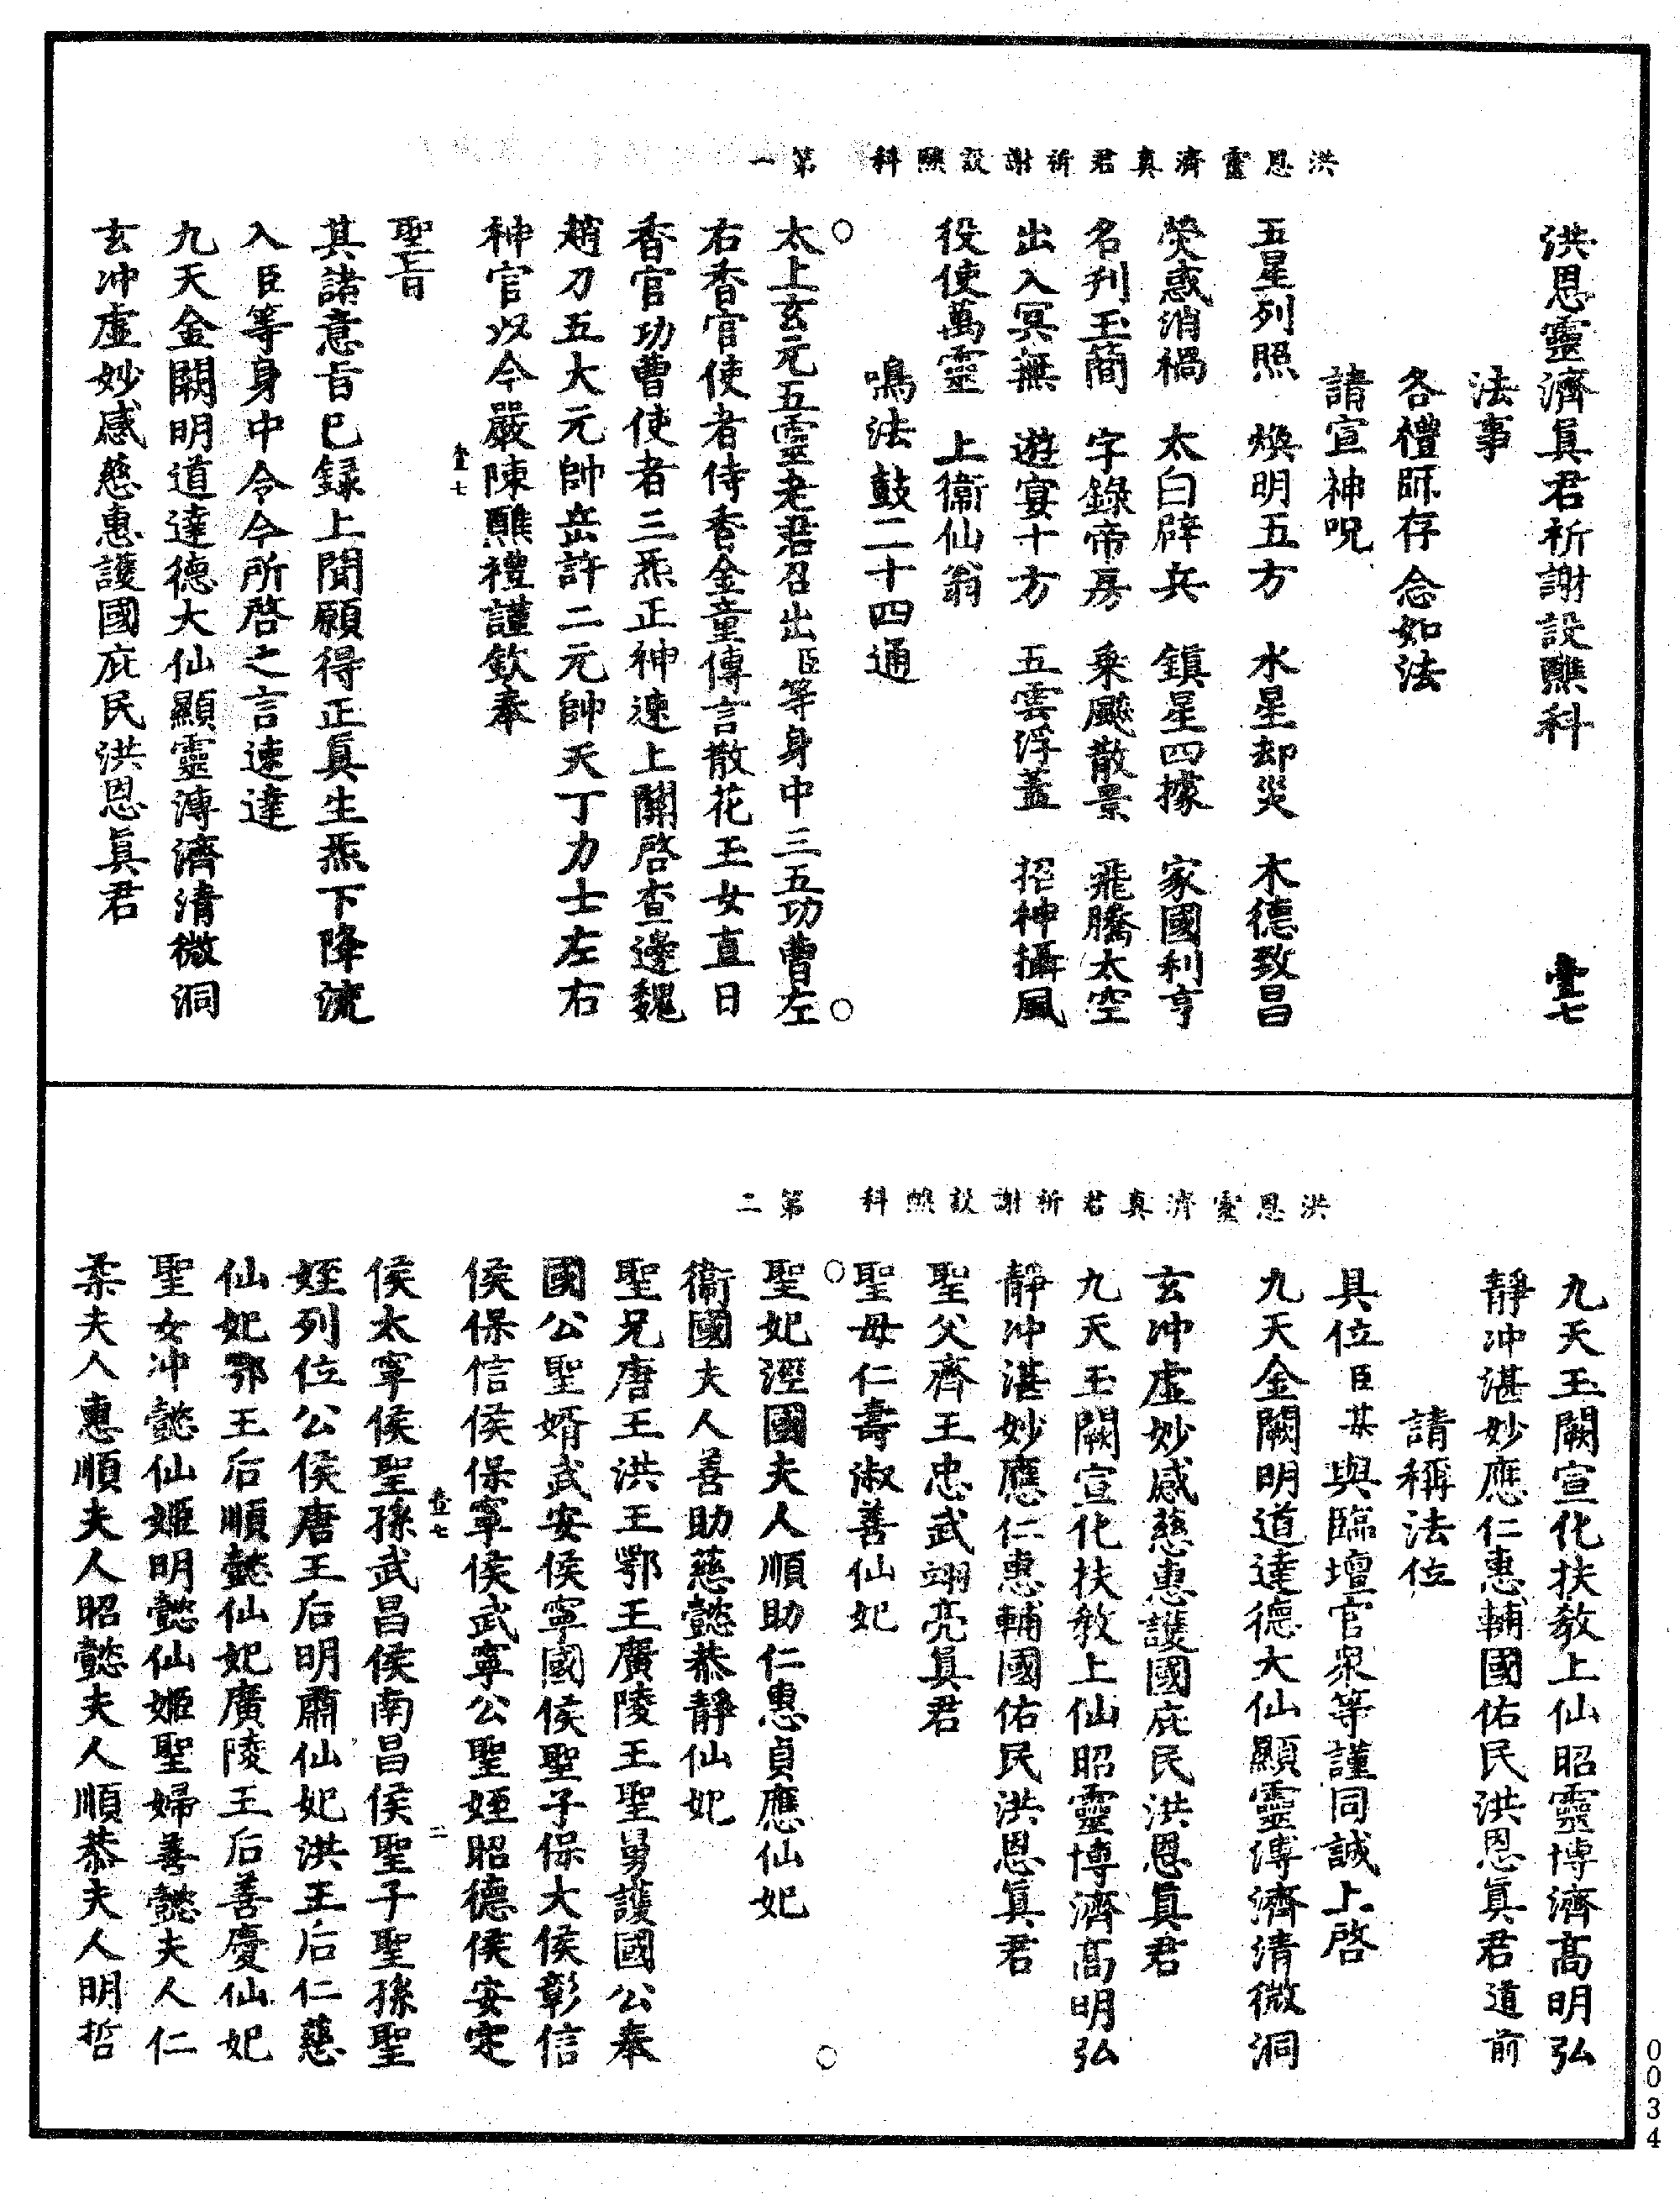 洪恩靈濟真君祈謝設醮科　第一
洪恩靈濟眞君祈謝設醮科　壹七
法事
各禮師存念如法
請宣神呪
五星列照　煥明五方　水星却災　木德致昌
熒惑消禍　太白辟兵　鎮星四據　家國利亨
名刋玉簡　字錄帝房　乗飈散景　飛騰太空
出入冥無　遊宴十方　五雲浮蓋　招神攝風
役使萬靈　上衞仙翁
鳴法鼓二十四通
太上玄元五靈老君召出臣等身中三五功曹左
右香官使者侍香金童傳言散花玉女直日
香官功曹使者三炁正神速上關啓查邊魏
趙刀五大元帥岳許二元帥天丁力士左右
神官以今嚴陳醮禮謹欽奉
壹七
聖旨
其諸意旨已録上聞願得正眞生炁下降流
入臣等身中令今所啓之言速達
九天金闕明道達德大仙顯靈溥濟清微洞
玄冲虛妙感慈惠護國庇民洪恩眞君
洪恩靈濟真君祈謝設醮科　第二
九天玉闕宣化扶教上仙昭靈博濟高明弘
靜冲湛妙應仁惠輔國佑民洪恩眞君道前
請稱法位
具位臣某與臨壇官衆等謹同誠上啓
九天金闕明道達德大仙顯靈溥濟清微洞
玄冲虛妙感慈惠護國庇民洪恩眞君
九天玉闕宣化扶教上仙昭靈博濟高明弘
靜冲湛妙應仁惠輔國佑民洪恩眞君
聖父齊王忠武翊亮眞君
聖母仁壽淑善仙妃
聖妃涇國夫人順助仁惠貞應仙妃
衞國夫人善助慈懿恭靜仙妃
聖兄唐王洪王鄂王廣陵王聖舅護國公奉
國公聖婿武安侯寧國侯聖子保大侯彰信
侯保信侯保寧侯武寧公聖姪昭德侯安定
壹七　二
侯太寧侯聖孫武昌侯南昌侯聖子聖孫聖
姪列位公侯唐王后明肅仙妃洪王后仁慈
仙妃鄂王后順懿仙妃廣陵王后善慶仙妃
聖女冲懿仙姬明懿仙姬聖婦善懿夫人仁
柔夫人惠順夫人昭懿夫人順恭夫人明哲
0034